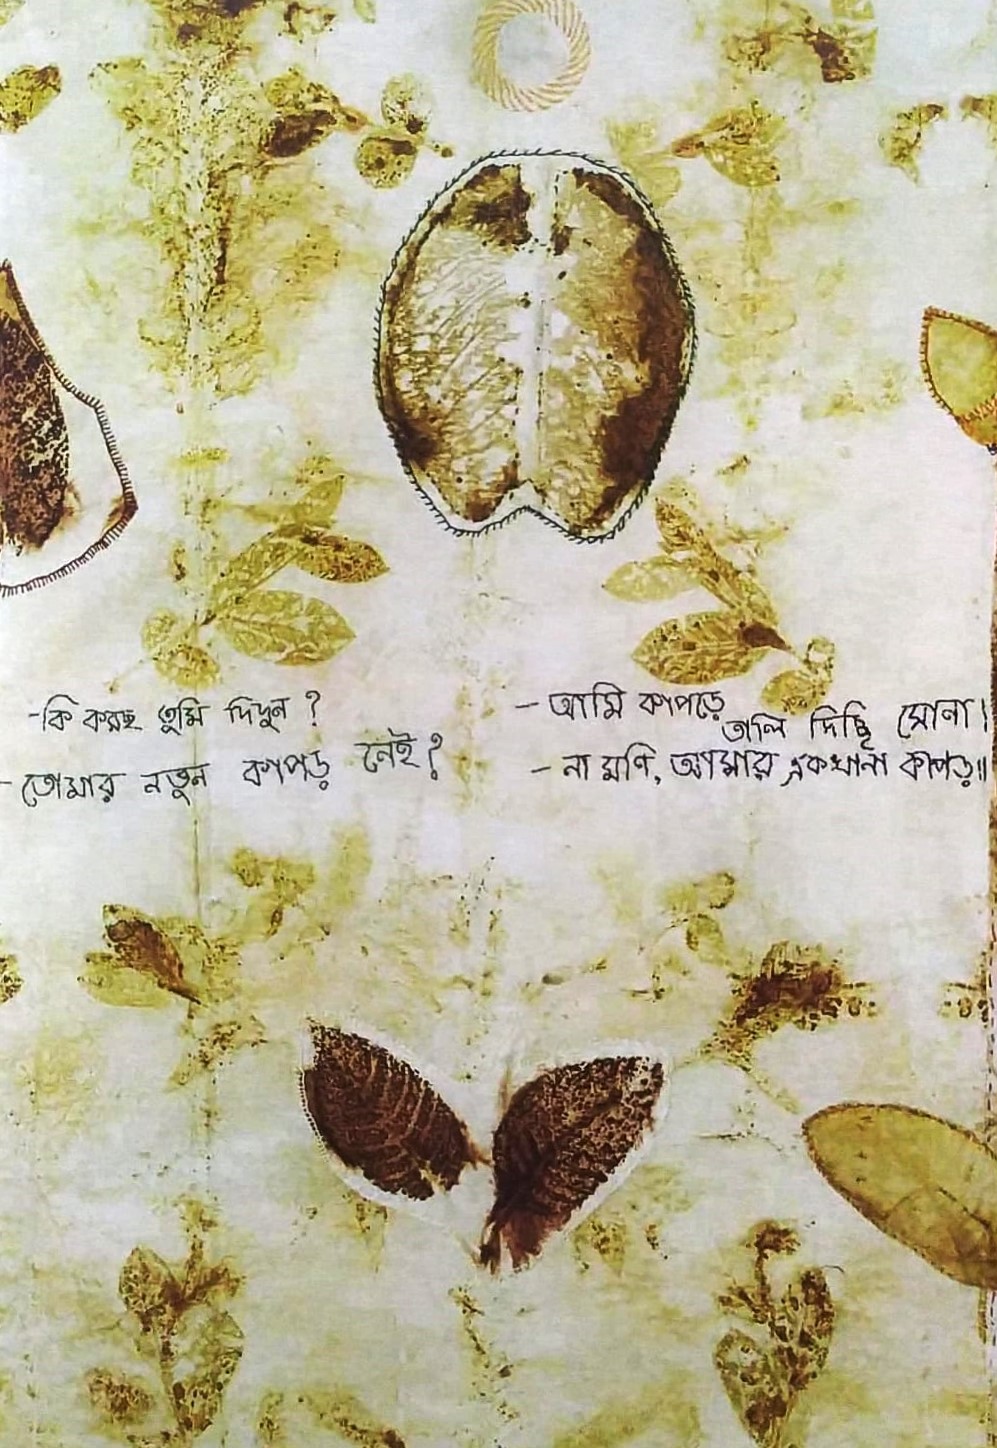 -কি করছ তুমি দিদুন ?
- আমি কাপড়ে তালি দিচ্ছি সোনা।
- তোমার নতুন কাপড় নেই?
- না মণি, আমার একখানা কাপড়॥